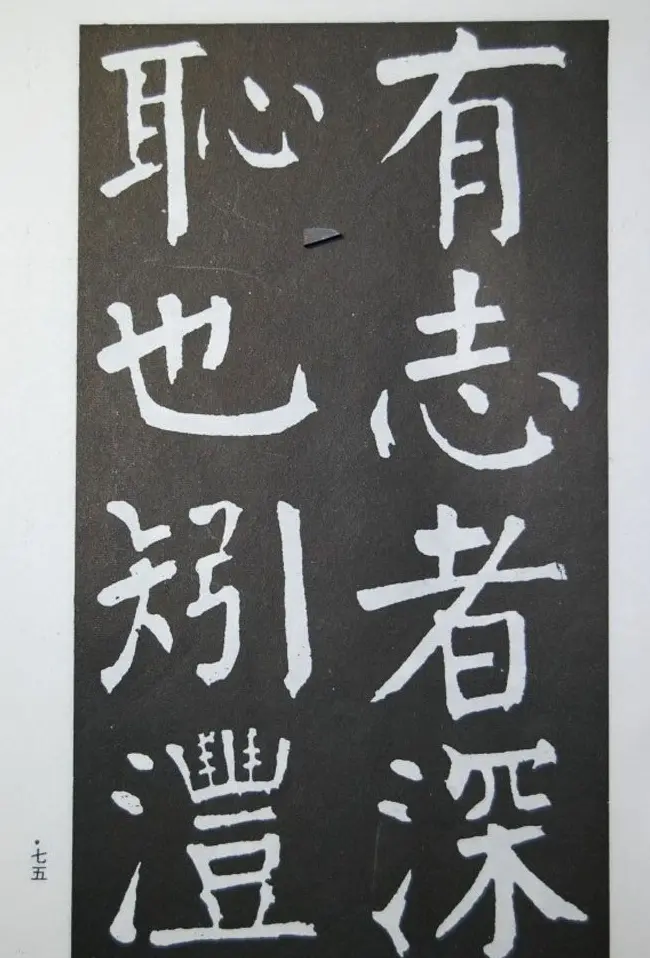 有志者深
恥也矧澧
·七五